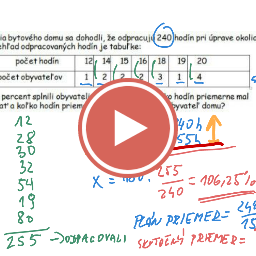 ia bytového domu sa dohodli, že odpracujú 240 hodín pri úprave okolia
ehľad odpracovaných hodín je tabuľke:
počet hodín 12 14 15 16 18 19 20
počet obyvateľov 1 2 2 2 3 1 4
percent splnili obyvate ko hodín priemerne mal
ať a koľko hodín priem obyvateľ domu?
12
28
30
32
54
19
80
255 → ODPRACOVALI
40h
55h
X = 100 · 255/240 = 106,25%
PLÁN PRIEMER =
SKUTOČNÝ PRIEMER =